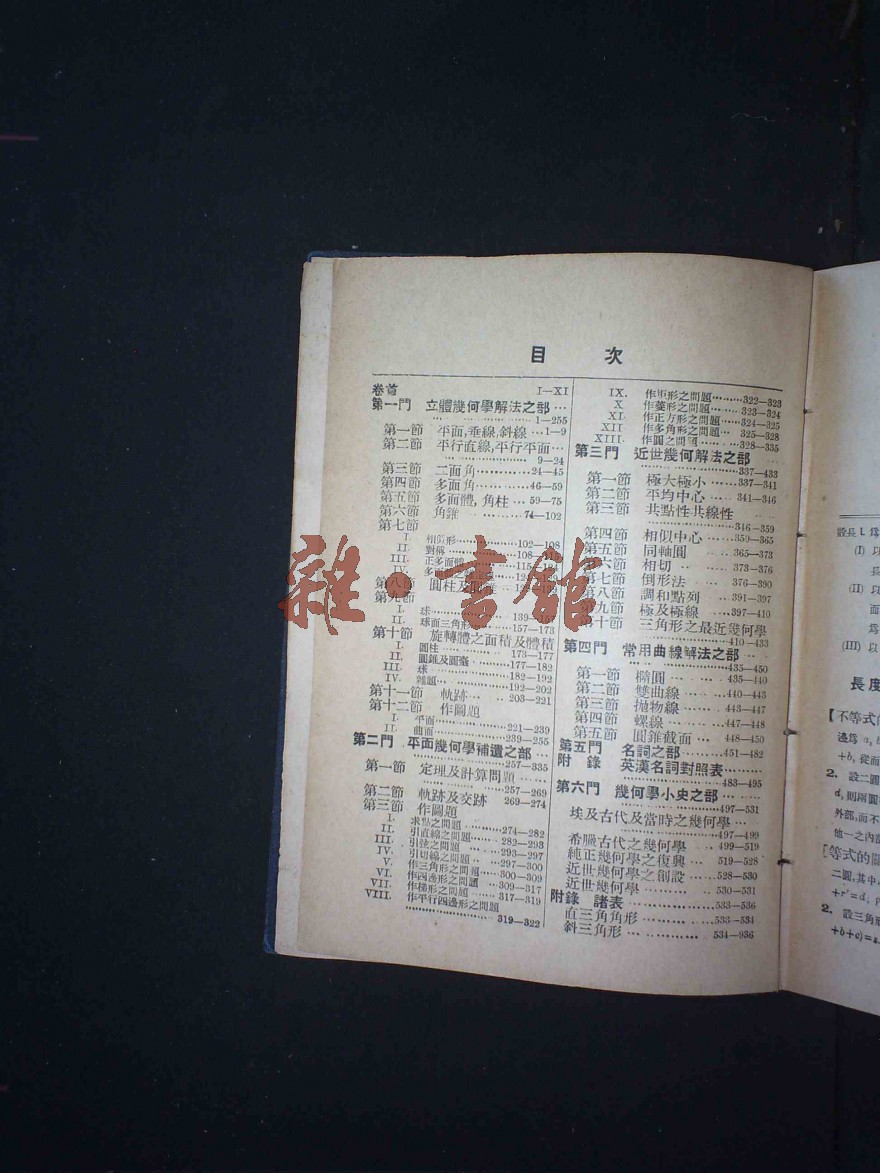 目 次
卷首 I—XI
第一門 立體幾何學解法之部…
1—255
第一節 平面,垂線,斜線…1—9
第二節 平行直線,平行平面…
9—24
第三節 二面角 24—45
第四節 多面角 46—59
第五節 多面體,角柱…59—75
第六節 角錐 74—102
第七節
I. 相似形 102—108
II. 對稱 108—115
III. 正多面體
IV.
第八節 圓柱及圓錐
第九節
I. 球
II. 球面三角形 157—173
第十節 旋轉體之面積及體積
I. 圓柱 173—177
II. 圓錐及圓臺 177—182
III. 球 182—192
IV. 雜題 192—202
第十一節 軌跡 203—221
第十二節 作圖題
I. 平面 221—239
II. 曲面 239—255
第二門 平面幾何學補遺之部…
257—335
第一節 定理及計算問題
257—269
第二節 軌跡及交跡 269—274
第三節 作圖題
I. 求點之問題 274—282
II. 引直線之問題 282—293
III. 引弦之問題 293—297
IV. 引切線之問題 297—300
V. 作三角形之問題 300—309
VI. 作四邊形之問題 309—317
VII. 作梯形之問題 317—319
VIII. 作平行四邊形之問題
319—322
IX. 作矩形之問題 322—323
X 作菱形之問題 323—324
XI. 作正方形之問題 324—325
XII 作多角形之問題 325—328
XIII. 作圓之問題 328—335
第三門 近世幾何解法之部
337—433
第一節 極大極小 337—341
第二節 平均中心 341—346
第三節 共點性共線性
346—359
第四節 相似中心 359—365
第五節 同軸圓 365—373
第六節 相切 373—376
第七節 倒形法 376—390
第八節 調和點列 391—397
第九節 極及極線 397—410
第十節 三角形之最近幾何學
410—433
第四門 常用曲線解法之部
435—450
第一節 橢圓 435—440
第二節 雙曲線 440—443
第三節 拋物線 443—447
第四節 螺線 447—448
第五節 圓錐截面 448—450
第五門 名詞之部 451—482
附 錄 英漢名詞對照表
483—495
第六門 幾何學小史之部
497—531
埃及古代及當時之幾何學
497—499
希臘古代之幾何學 499—519
純正幾何學之復興 519—528
近世幾何學之創設 528—530
近世幾何學 530—531
附錄 諸表 533—536
直三角角形 533—534
斜三角形 534—936
雜·書館
設長 l. 爲
(I) 以
長
(II) 以
面
爲
(III) 以
長度
【不等式的
邊爲 a, b
+b, 從而
2. 設二圓
d, 則兩圓
外部,而不
他一之內部
[等式的關
二圓,其中
+r'=d; 內
2. 設三角形
+b+c)=s.